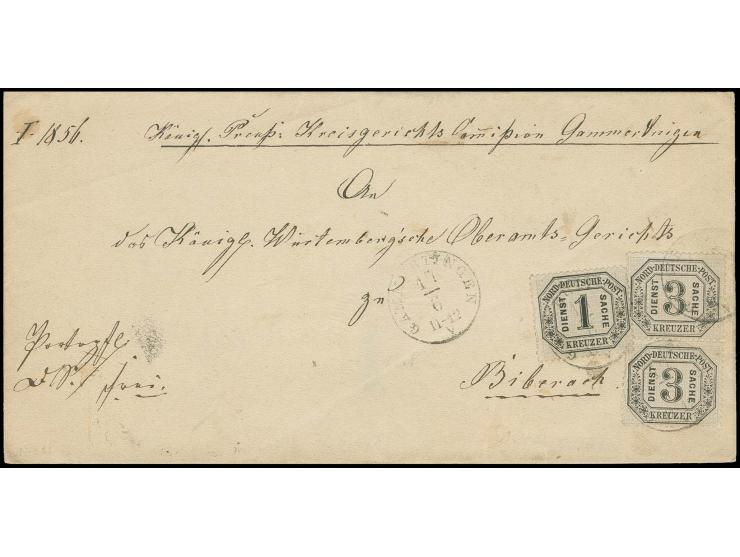 I. 1856.
Königl. Preuß: Kreisgerichts Commißion Gammertingen
An
das Königl. Würtemberg'sche Oberamts-Gerichts
zu
Biberach.
GAMMERTINGEN
17
6
11-12
V
NORD-DEUTSCHE-POST
DIENST 1 SACHE
KREUZER
NORD-DEUTSCHE-POST
DIENST 3 SACHE
KREUZER
NORD-DEUTSCHE-POST
DIENST 3 SACHE
KREUZER
Portopfl.
D. S. frei.